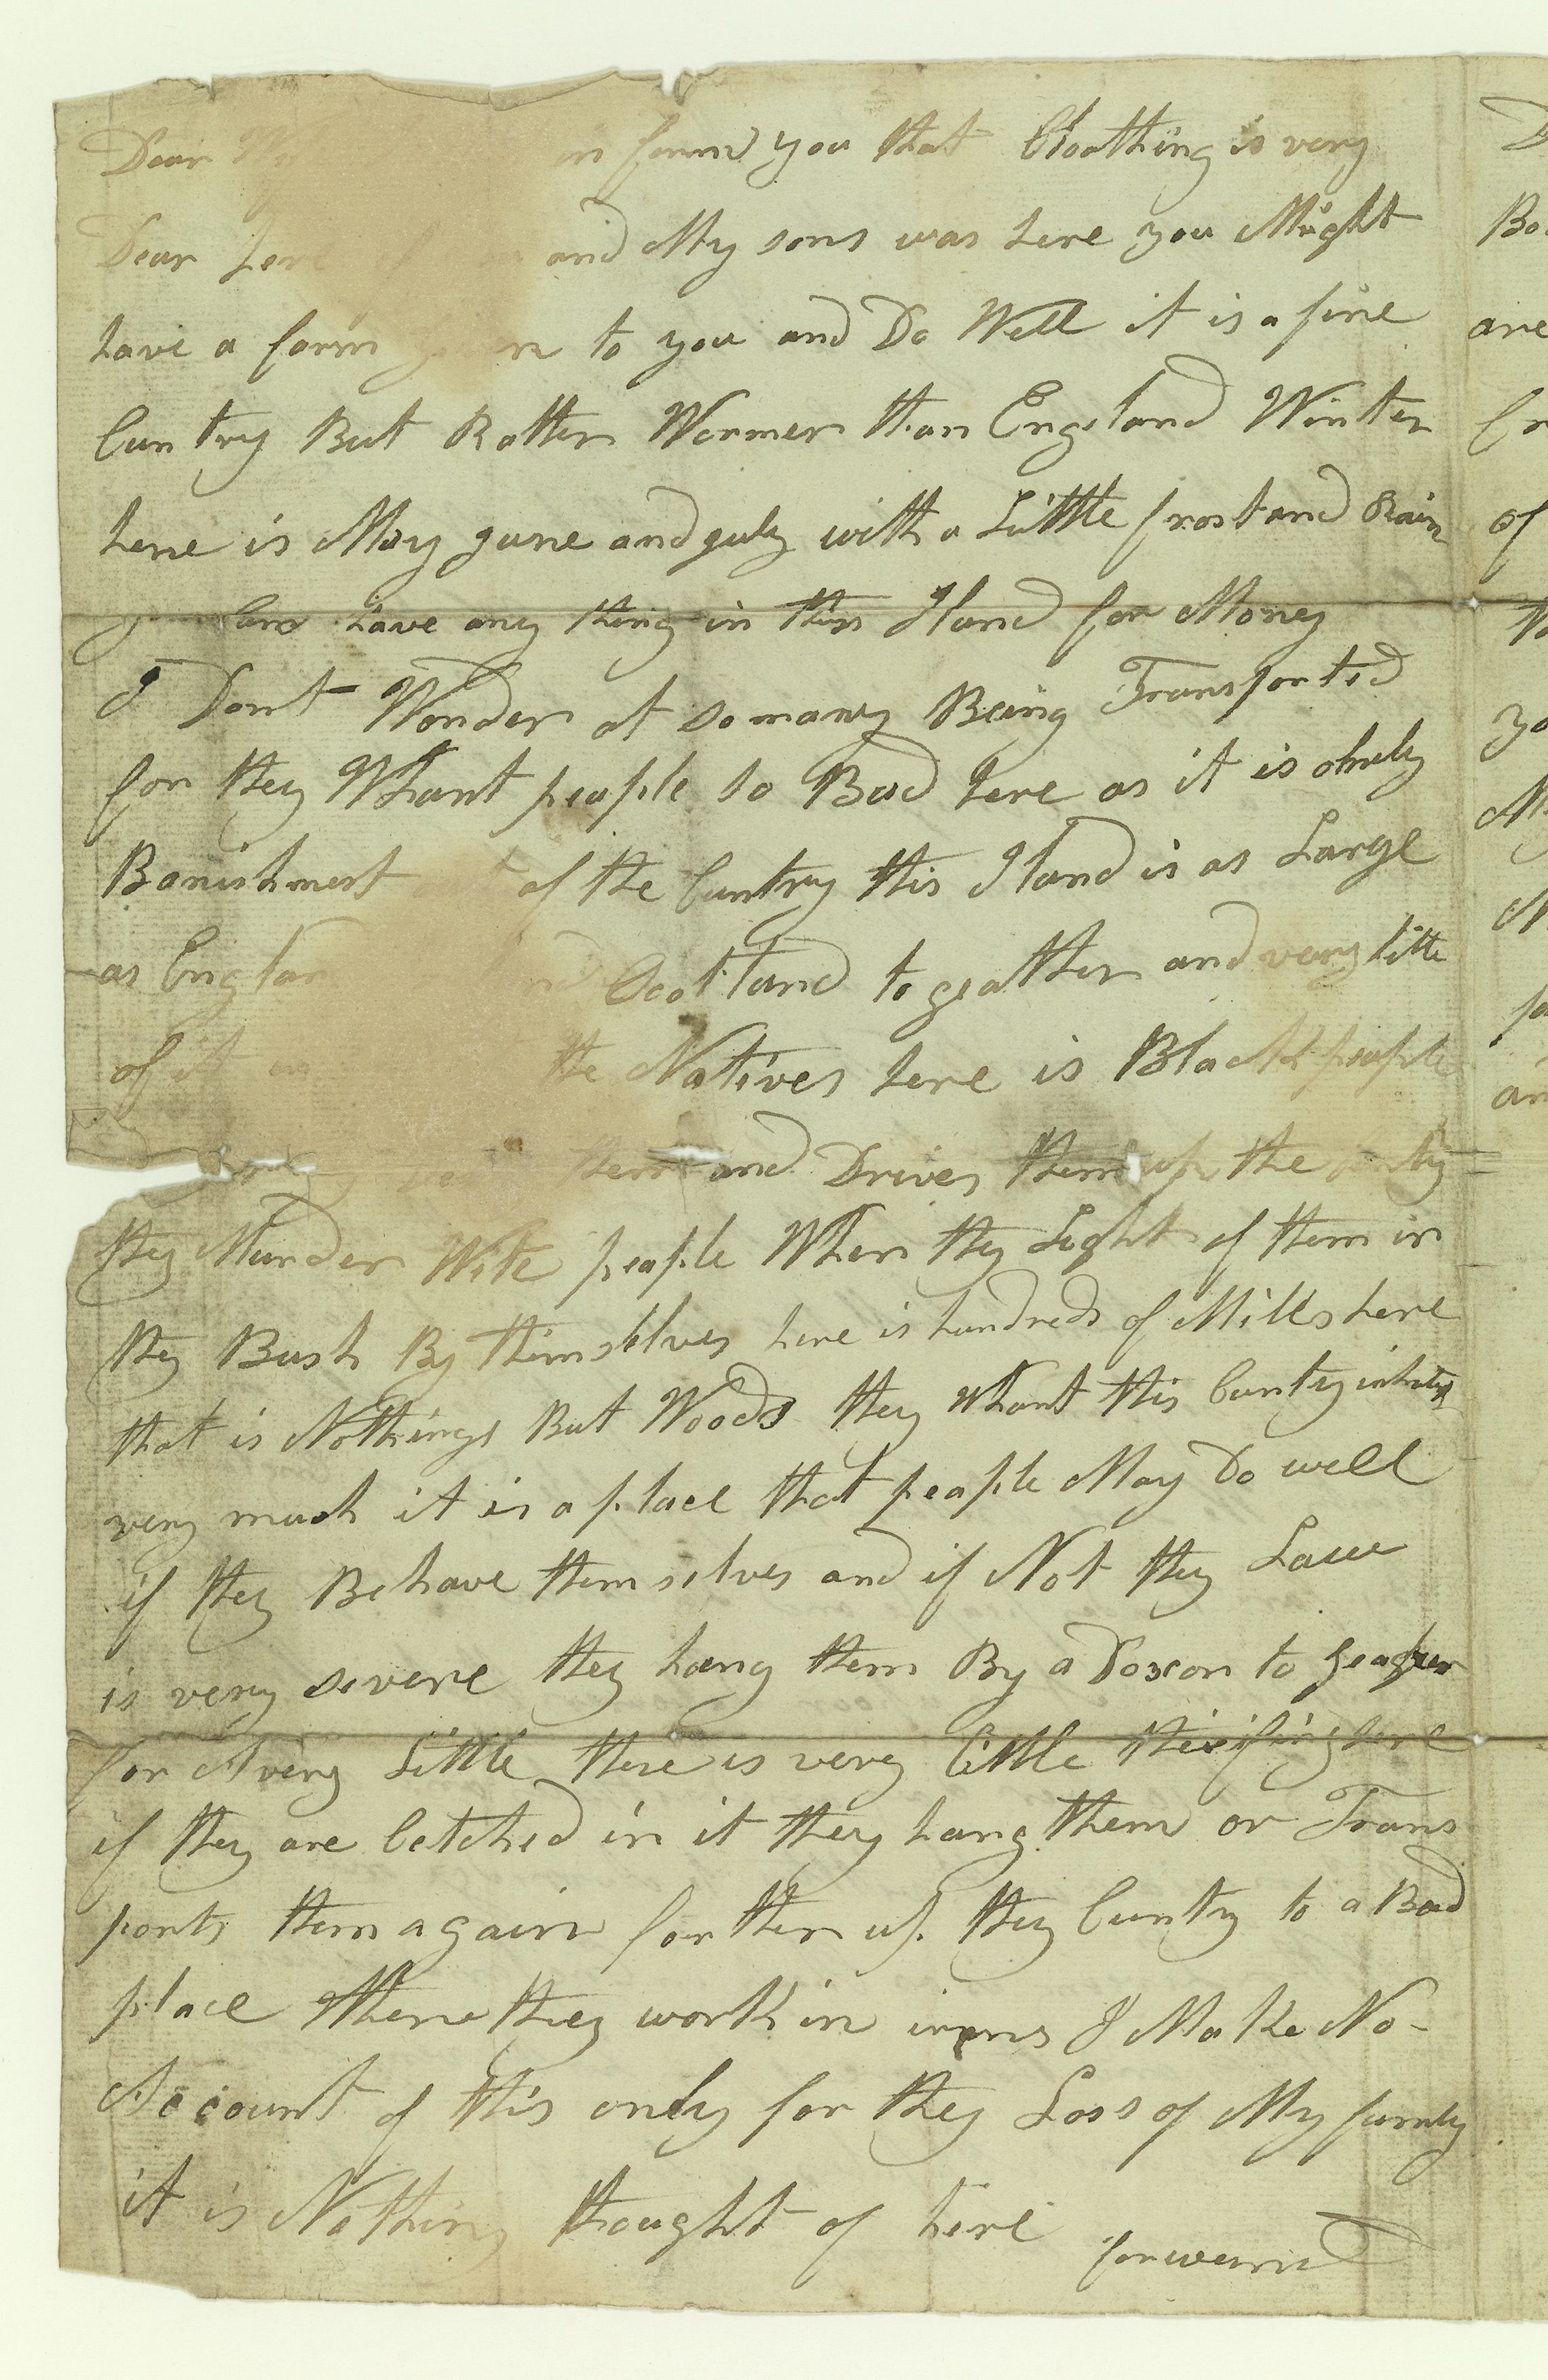 Dear in form you that Cloathing is very
Dear here and My sons was here you Might
have a farm to you and Do Well it is a fine
Cuntry But Rather Warmer than England Winter
here is May June and July with a Little frost and Rain
Can have any thing in this Iland for Money
I Dont Wonder at so many Being Transported
for they Whant people so Bad here as it is ohnly
Banishment of the Cuntry this Iland is as Large
as Scotland to geather and very little
of it the Natives here is Black people
them and Drives them up the
they Murder Wite people When they Light of them in
they Bush By themselves here is hundreds of Mills here
that is Nothings But Woods they Whant this Cuntry
very much it is a place that people May Do well
if they Behave them selves and if Not they Laue
is very severe they hang them By a Doxon to geather
for A very Little there is very little here
if they are Cetched in it they hang them or Trans
ports them again farther up they Cuntry to a Bad
place Where they work in irons I Make No-
Account of this only for they Loss of My famly
it is Nothing thought of here
forward
Bo
are
of